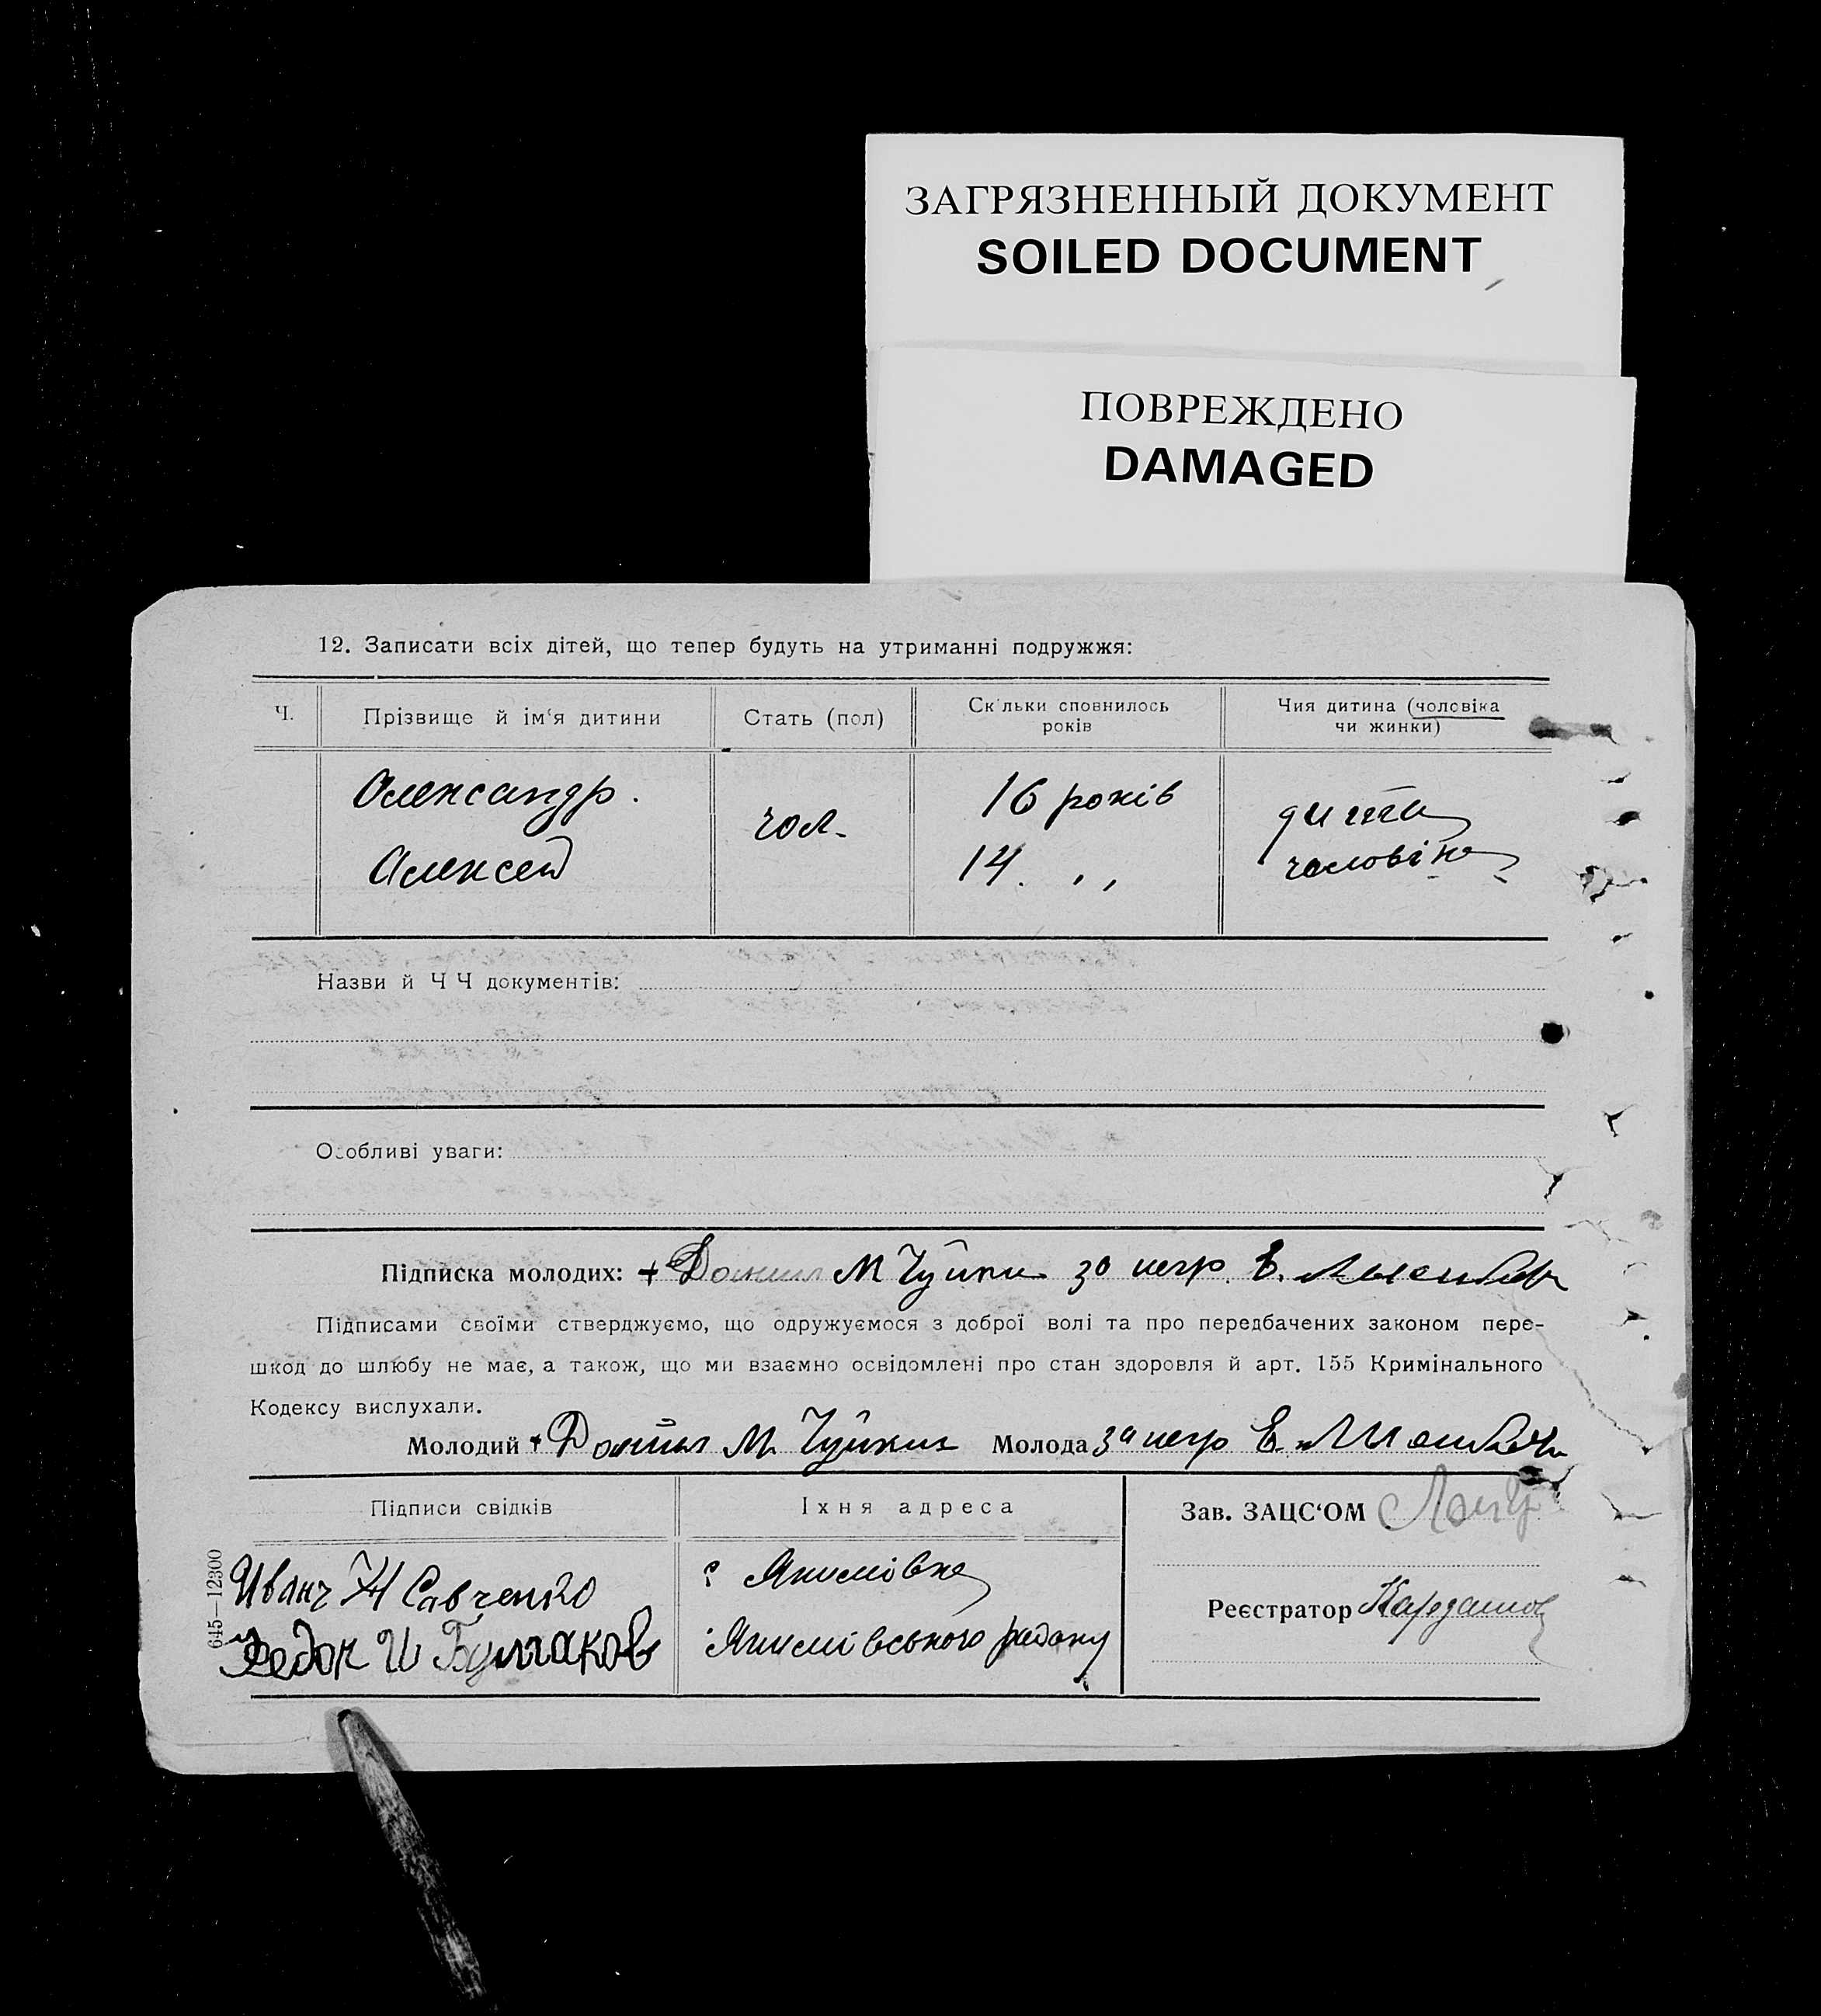 ЗАГРЯЗНЕННЫЙ ДОКУМЕНТ
SOILED DOCUMENT
ПОВРЕЖДЕНО
DAMAGED
12. Записати всіх дітей, що тепер будуть на утриманні подружжя:
Ч. Прізвище й ім‘я дитини Стать (пол) Скільки сповнилось років Чия дитина (чоловіка чи жинки)
Олександр. чол. 16 років дитя
Алексей 14. ,, чоловіка
Назви й Ч Ч документів:
Особливі уваги:
Підписка молодих: + Данил М Чуйки за негр. Е.
Підписами своїми стверджуємо, що одружуємося з доброї волі та про передбачених законом пере-
шкод до шлюбу не має, а також, що ми взаємно освідомлені про стан здоровля й арт. 155 Кримінального
Кодексу вислухали.
Молодий + Данил М. Чуйкин Молода за негр Е.
Підписи свідків Їхня адреса Зав. ЗАЦС‘ОМ
Иванъ Савченко с Якимівка
Реєстратор Кардашов
Федок И Булгаковъ Якимівського району
645—12300